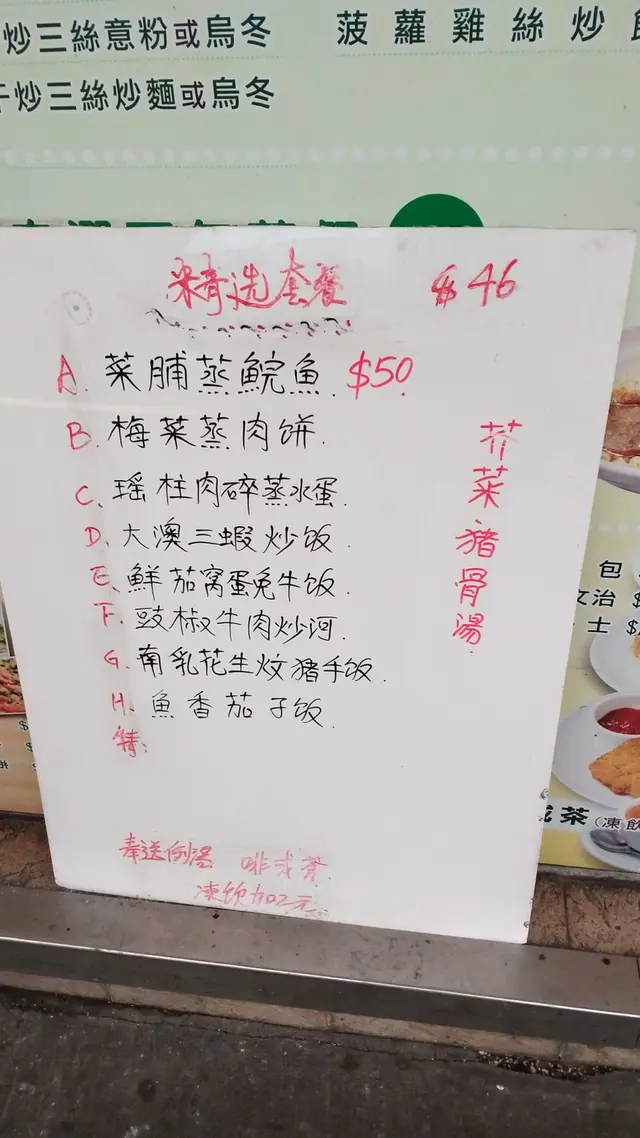 炒三絲意粉或烏冬
菠蘿雞絲炒
干炒三絲炒麵或烏冬
精选套餐 $46
A. 菜脯蒸鯇魚. $50.
B. 梅菜蒸肉饼.
C. 瑶柱肉碎蒸水蛋.
D. 大澳三蝦炒饭.
E. 鮮茄窝蛋免牛饭.
F. 豉椒牛肉炒河.
G. 南乳花生炆猪手饭.
H. 魚香茄子饭.
特:
芥菜豬骨湯.
奉送例湯 啡或茶.
凍饮加2元
包
文治 $
士 $
茶(凍飲